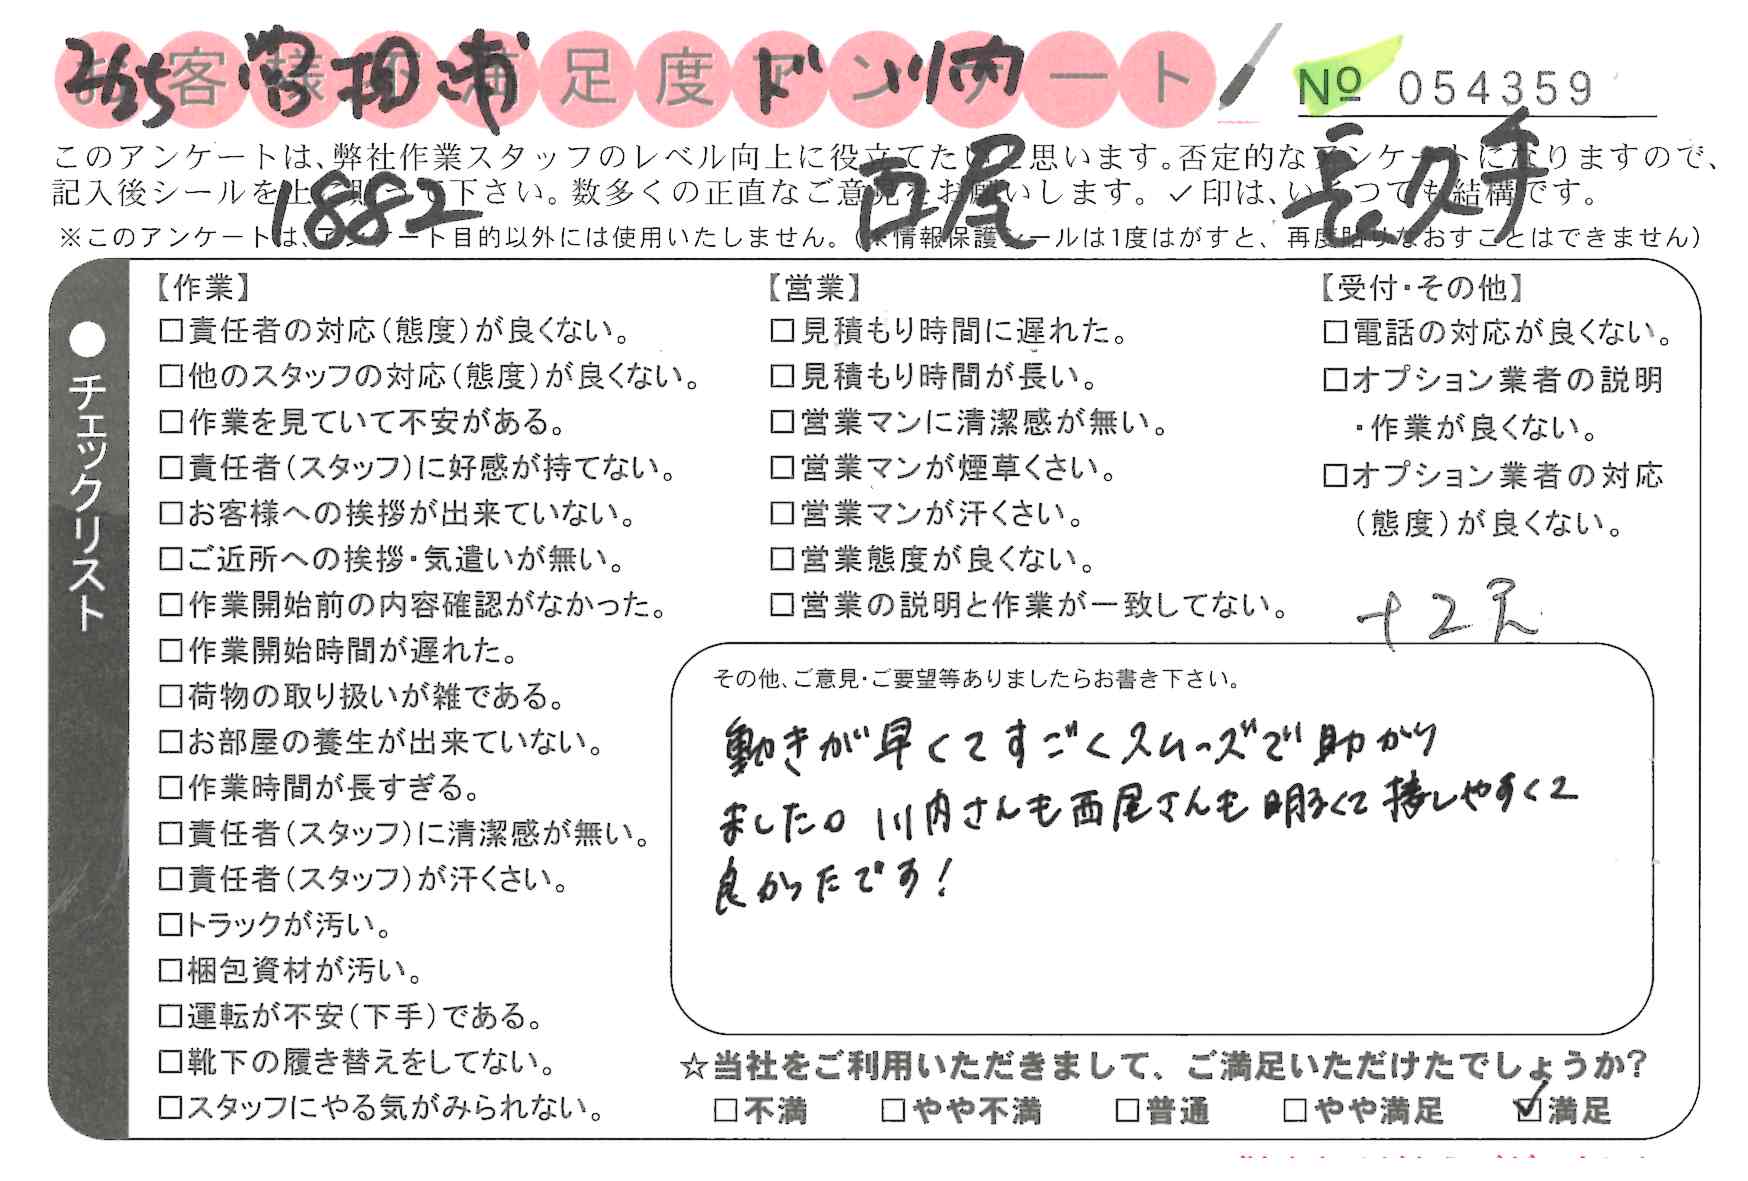 お客様不満足度アンケート
ド 川内
№ 054359
このアンケートは、弊社作業スタッフのレベル向上に役立てたいと思います。否定的なアンケートになりますので、
記入後シールを上に貼って下さい。数多くの正直なご意見をお願いします。✓印は、いくつでも結構です。
1882 西尾 長久手
※このアンケートは、アンケート目的以外には使用いたしません。(※情報保護シールは1度はがすと、再度貼りなおすことはできません)
●チェックリスト
【作業】
□責任者の対応(態度)が良くない。
□他のスタッフの対応(態度)が良くない。
□作業を見ていて不安がある。
□責任者(スタッフ)に好感が持てない。
□お客様への挨拶が出来ていない。
□ご近所への挨拶・気遣いが無い。
□作業開始前の内容確認がなかった。
□作業開始時間が遅れた。
□荷物の取り扱いが雑である。
□お部屋の養生が出来ていない。
□作業時間が長すぎる。
□責任者(スタッフ)に清潔感が無い。
□責任者(スタッフ)が汗くさい。
□トラックが汚い。
□梱包資材が汚い。
□運転が不安(下手)である。
□靴下の履き替えをしてない。
□スタッフにやる気がみられない。
【営業】
□見積もり時間に遅れた。
□見積もり時間が長い。
□営業マンに清潔感が無い。
□営業マンが煙草くさい。
□営業マンが汗くさい。
□営業態度が良くない。
□営業の説明と作業が一致してない。
【受付・その他】
□電話の対応が良くない。
□オプション業者の説明
・作業が良くない。
□オプション業者の対応
(態度)が良くない。
+2
その他、ご意見・ご要望等ありましたらお書き下さい。
動きが早くてすごくスムーズで助かり
ました。川内さんも西尾さんも明るくて接しやすくて
良かったです!
☆当社をご利用いただきまして、ご満足いただけたでしょうか?
□不満 □やや不満 □普通 □やや満足 ☑満足